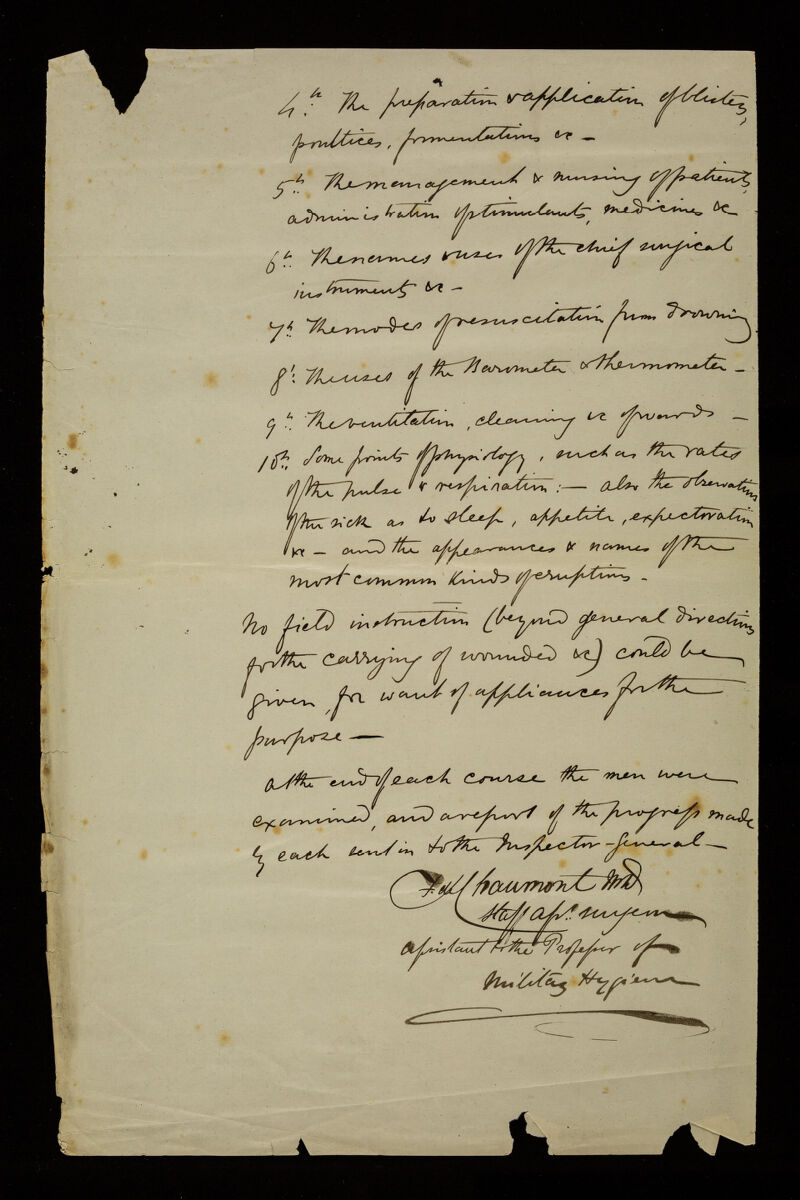 4th The preparation & application of blisters,
poultices, fomentations &c —
5th The management & nursing of patients,
administration of stimulants, medicines &c
6th The names & uses of the chief surgical
instruments &c —
7th The modes of resuscitation from drowning.
8th The uses of the Barometer & thermometer —
9th The ventilation, cleaning &c of wards —
10th Some points of physiology, such as the rates
of the pulse & respiration: — also the observation
of the sick as to sleep, appetite, expectoration
&c — and the appearances & names of the
most common kinds of eruptions.
No field instruction (beyond general directions
for the carrying of wounded &c) could be
given, for want of appliances for the
purpose —
At the end of each course the men were
examined, and a report of the progress made
by each sent in to the Inspector-General —
F. de Chaumont MD
Staff Asst. Surgeon
Assistant to the Professor of
Military Hygiene